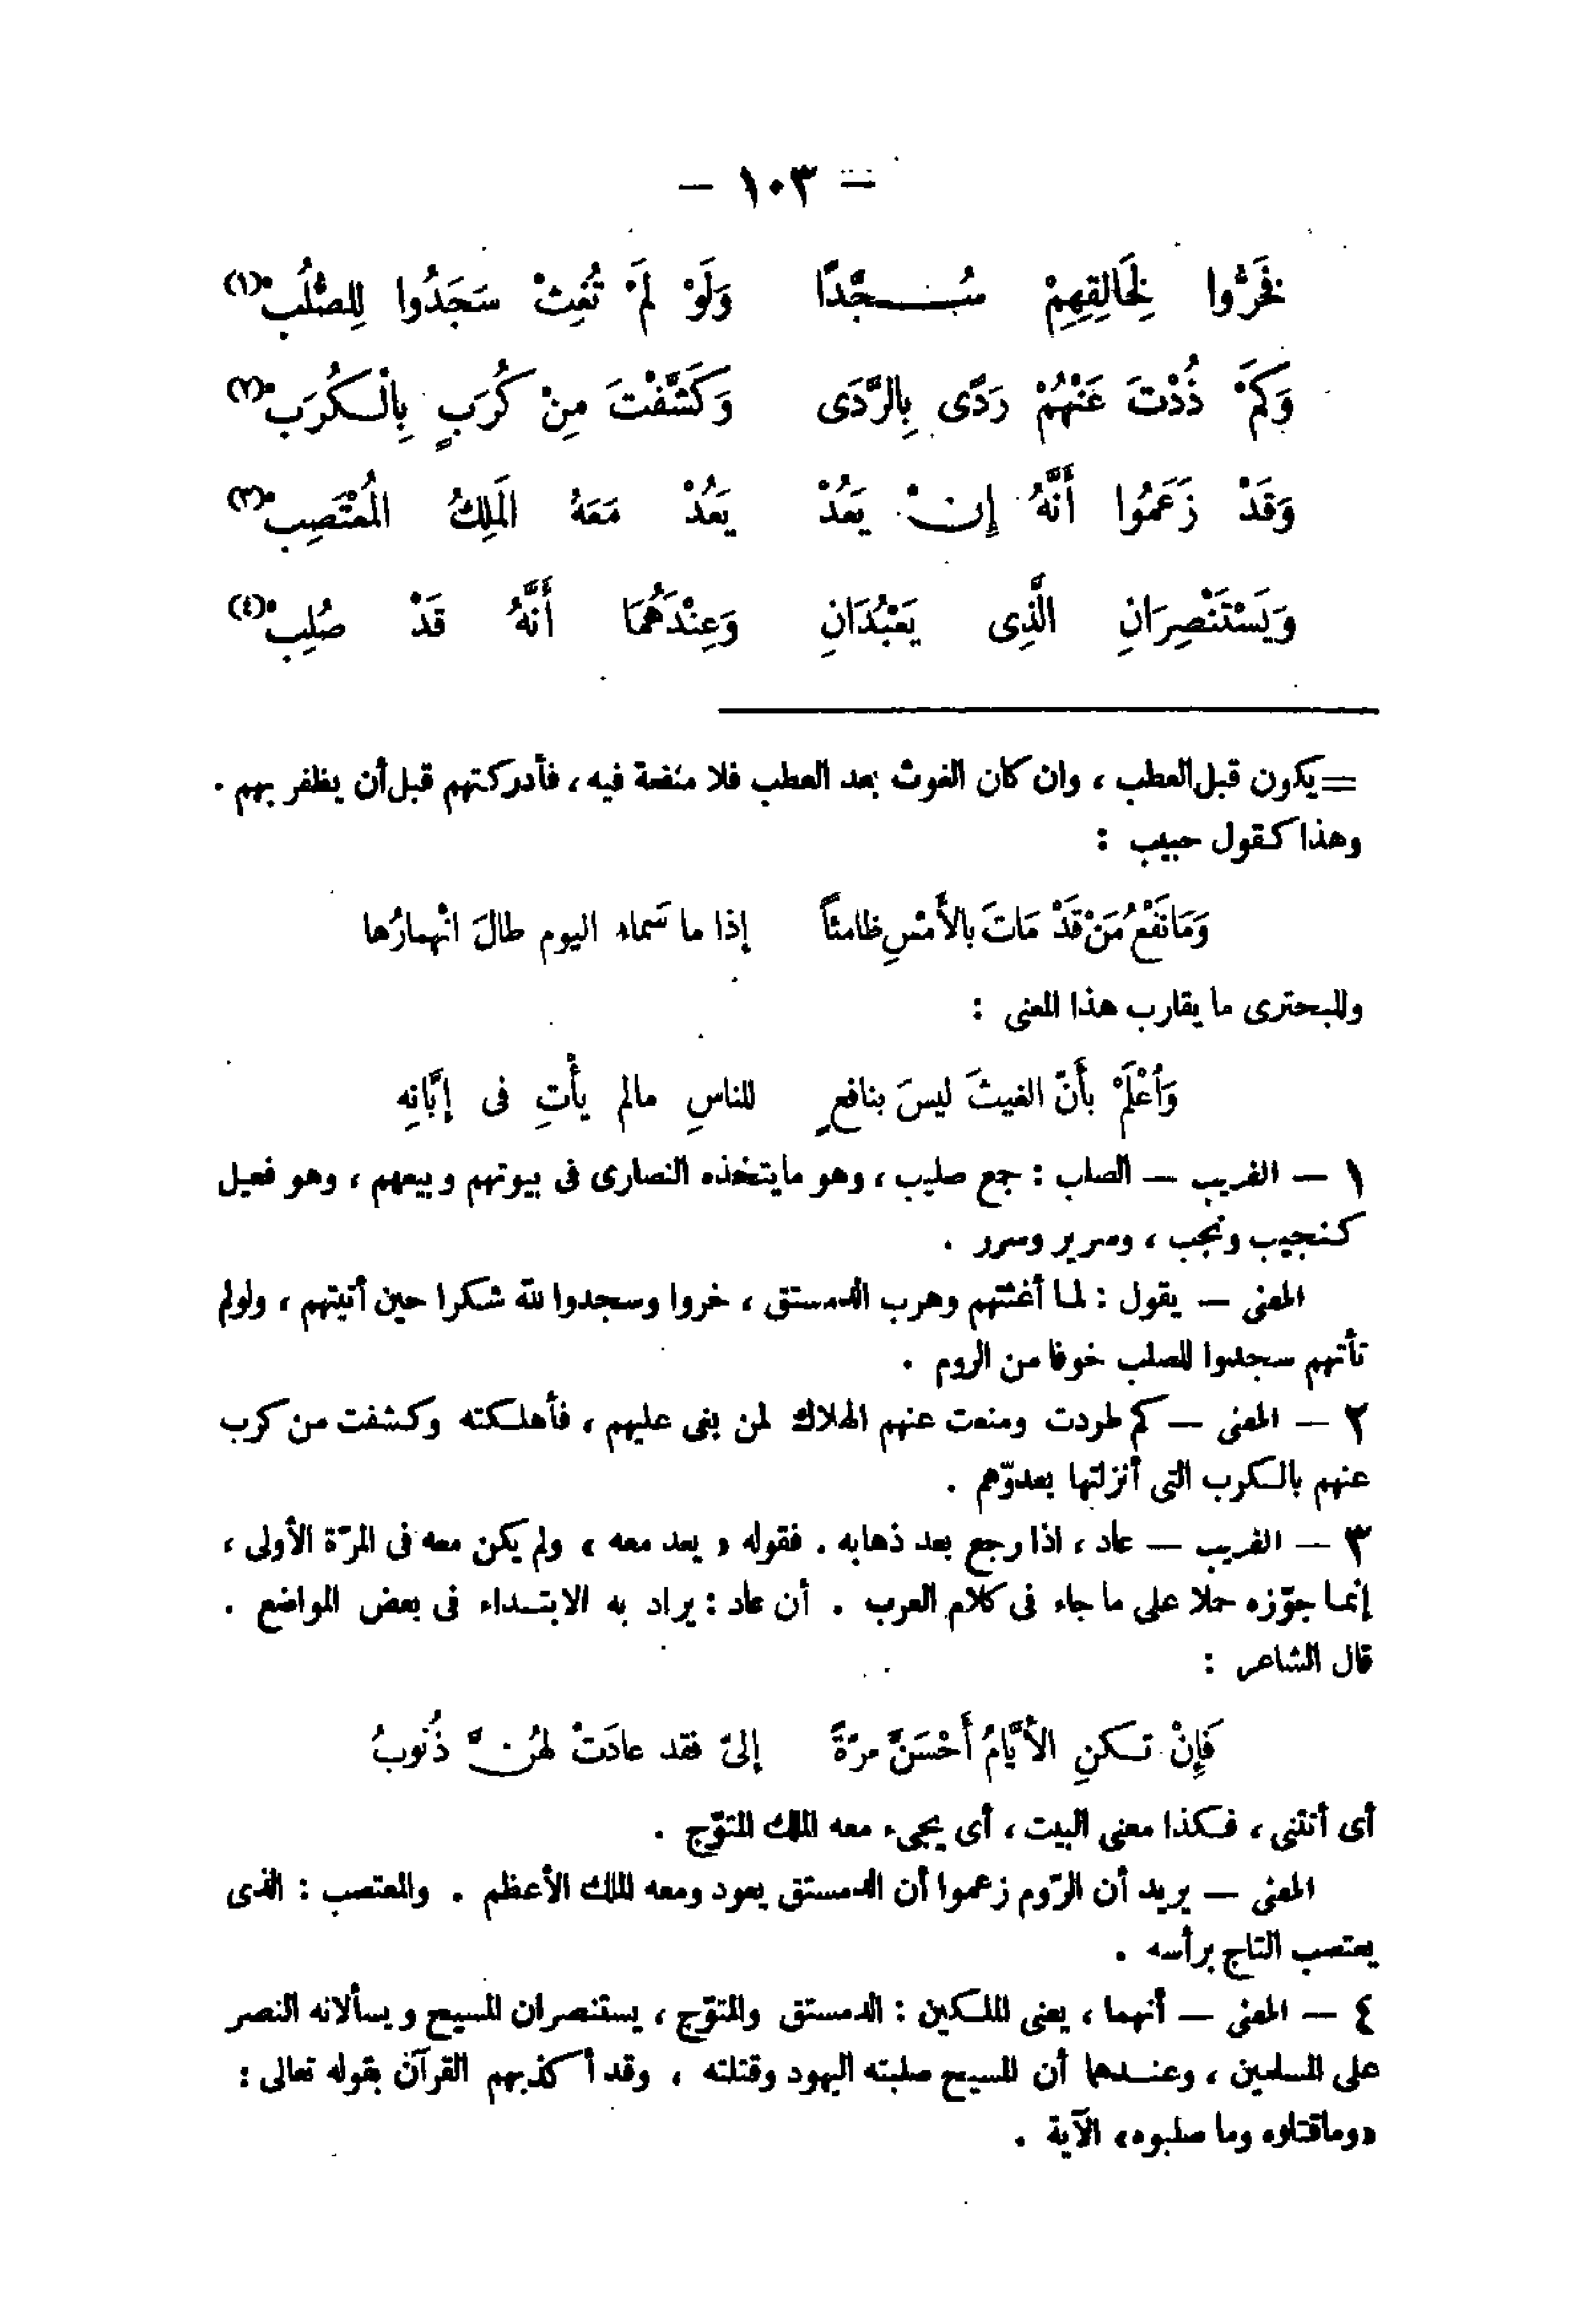 – ١٠٣ –
فَخَرُّوا لِخَالِقِهِمْ سُجَّدًا وَلَوْ لَمْ تُغِثْ سَجَدُوا لِلصُّلُبْ (١)
وَكَمْ ذُدْتَ عَنْهُمْ رَدًى بِالرَّدَى وَكَشَّفْتَ مِنْ كُرَبٍ بِالْكُرَبْ (٢)
وَقَدْ زَعَمُوا أَنَّهُ إِنْ يَعُدْ يَعُدْ مَعَهُ الْمَلِكُ الْمُعْتَصِبْ (٣)
وَيَسْتَنْصِرَانِ الَّذِى يَعْبُدَانِ وَعِنْدَهُمَا أَنَّهُ قَدْ صُلِبْ (٤)
= يكون قبل العطب ، وان كان الغوث بعد العطب فلا منفعة فيه ، فأدركتهم قبل أن يظفر بهم .
وهذا كقول حبيب :
وَمَا نَفْعُ مَنْ قَدْ مَاتَ بالأَمْسِ ظامئاً إذا ما سَماء اليوم طالَ انْهمارُها
وللبحترى ما يقارب هذا المعنى :
وَاُعْلَمْ بأَنّ الغيثَ ليسَ بنافعٍ للناسِ مالم يأْتِ فى إبَّانِه
١ – الغريب – الصلب : جمع صليب ، وهو مايتخذه النصارى فى بيوتهم وبيعهم ، وهو فعيل
كنجيب ونجب ، وسرير وسرر .
المعنى – يقول : لما أغثتهم وهرب الدمستق ، خروا وسجدوا لله شكرا حين أتيتهم ، ولولم
تأتهم سجدوا للصلب خوفا من الروم .
٢ – المعنى – كم طردت ومنعت عنهم الهلاك لمن بغى عليهم ، فأهلكته وكشفت من كرب
عنهم بالكرب التى أنزلتها بعدوّهم .
٣ – الغريب – عاد ، اذا رجع بعد ذهابه . فقوله « يعد معه » ولم يكن معه فى المرّة الأولى ،
إنما جوّزه حملا على ما جاء فى كلام العرب . أن عاد : يراد به الابتداء فى بعض المواضع .
قال الشاعر :
فَإنْ تكنِ الأيَّامُ أَحْسَنَّ مرّةً إلىّ فقد عادَتْ لهُنَّ ذُنوبُ
أى أتتنى ، فكذا معنى البيت ، أى يجىء معه الملك المتوّج .
المعنى – يريد أن الرّوم زعموا أن الدمستق يعود ومعه الملك الأعظم . والمعتصب : الذى
يعتصب التاج برأسه .
٤ – المعنى – أنهما ، يعنى الملكين : الدمستق والمتوّج ، يستنصران المسيح ويسألانه النصر
على المسلمين ، وعندهما أن المسيح صلبته اليهود وقتلته ، وقد أكذبهم القرآن بقوله تعالى :
«وماقتلوه وما صلبوه» الآية .